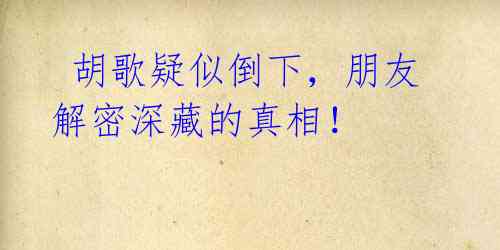 胡歌疑似倒下，朋友
解密深藏的真相！